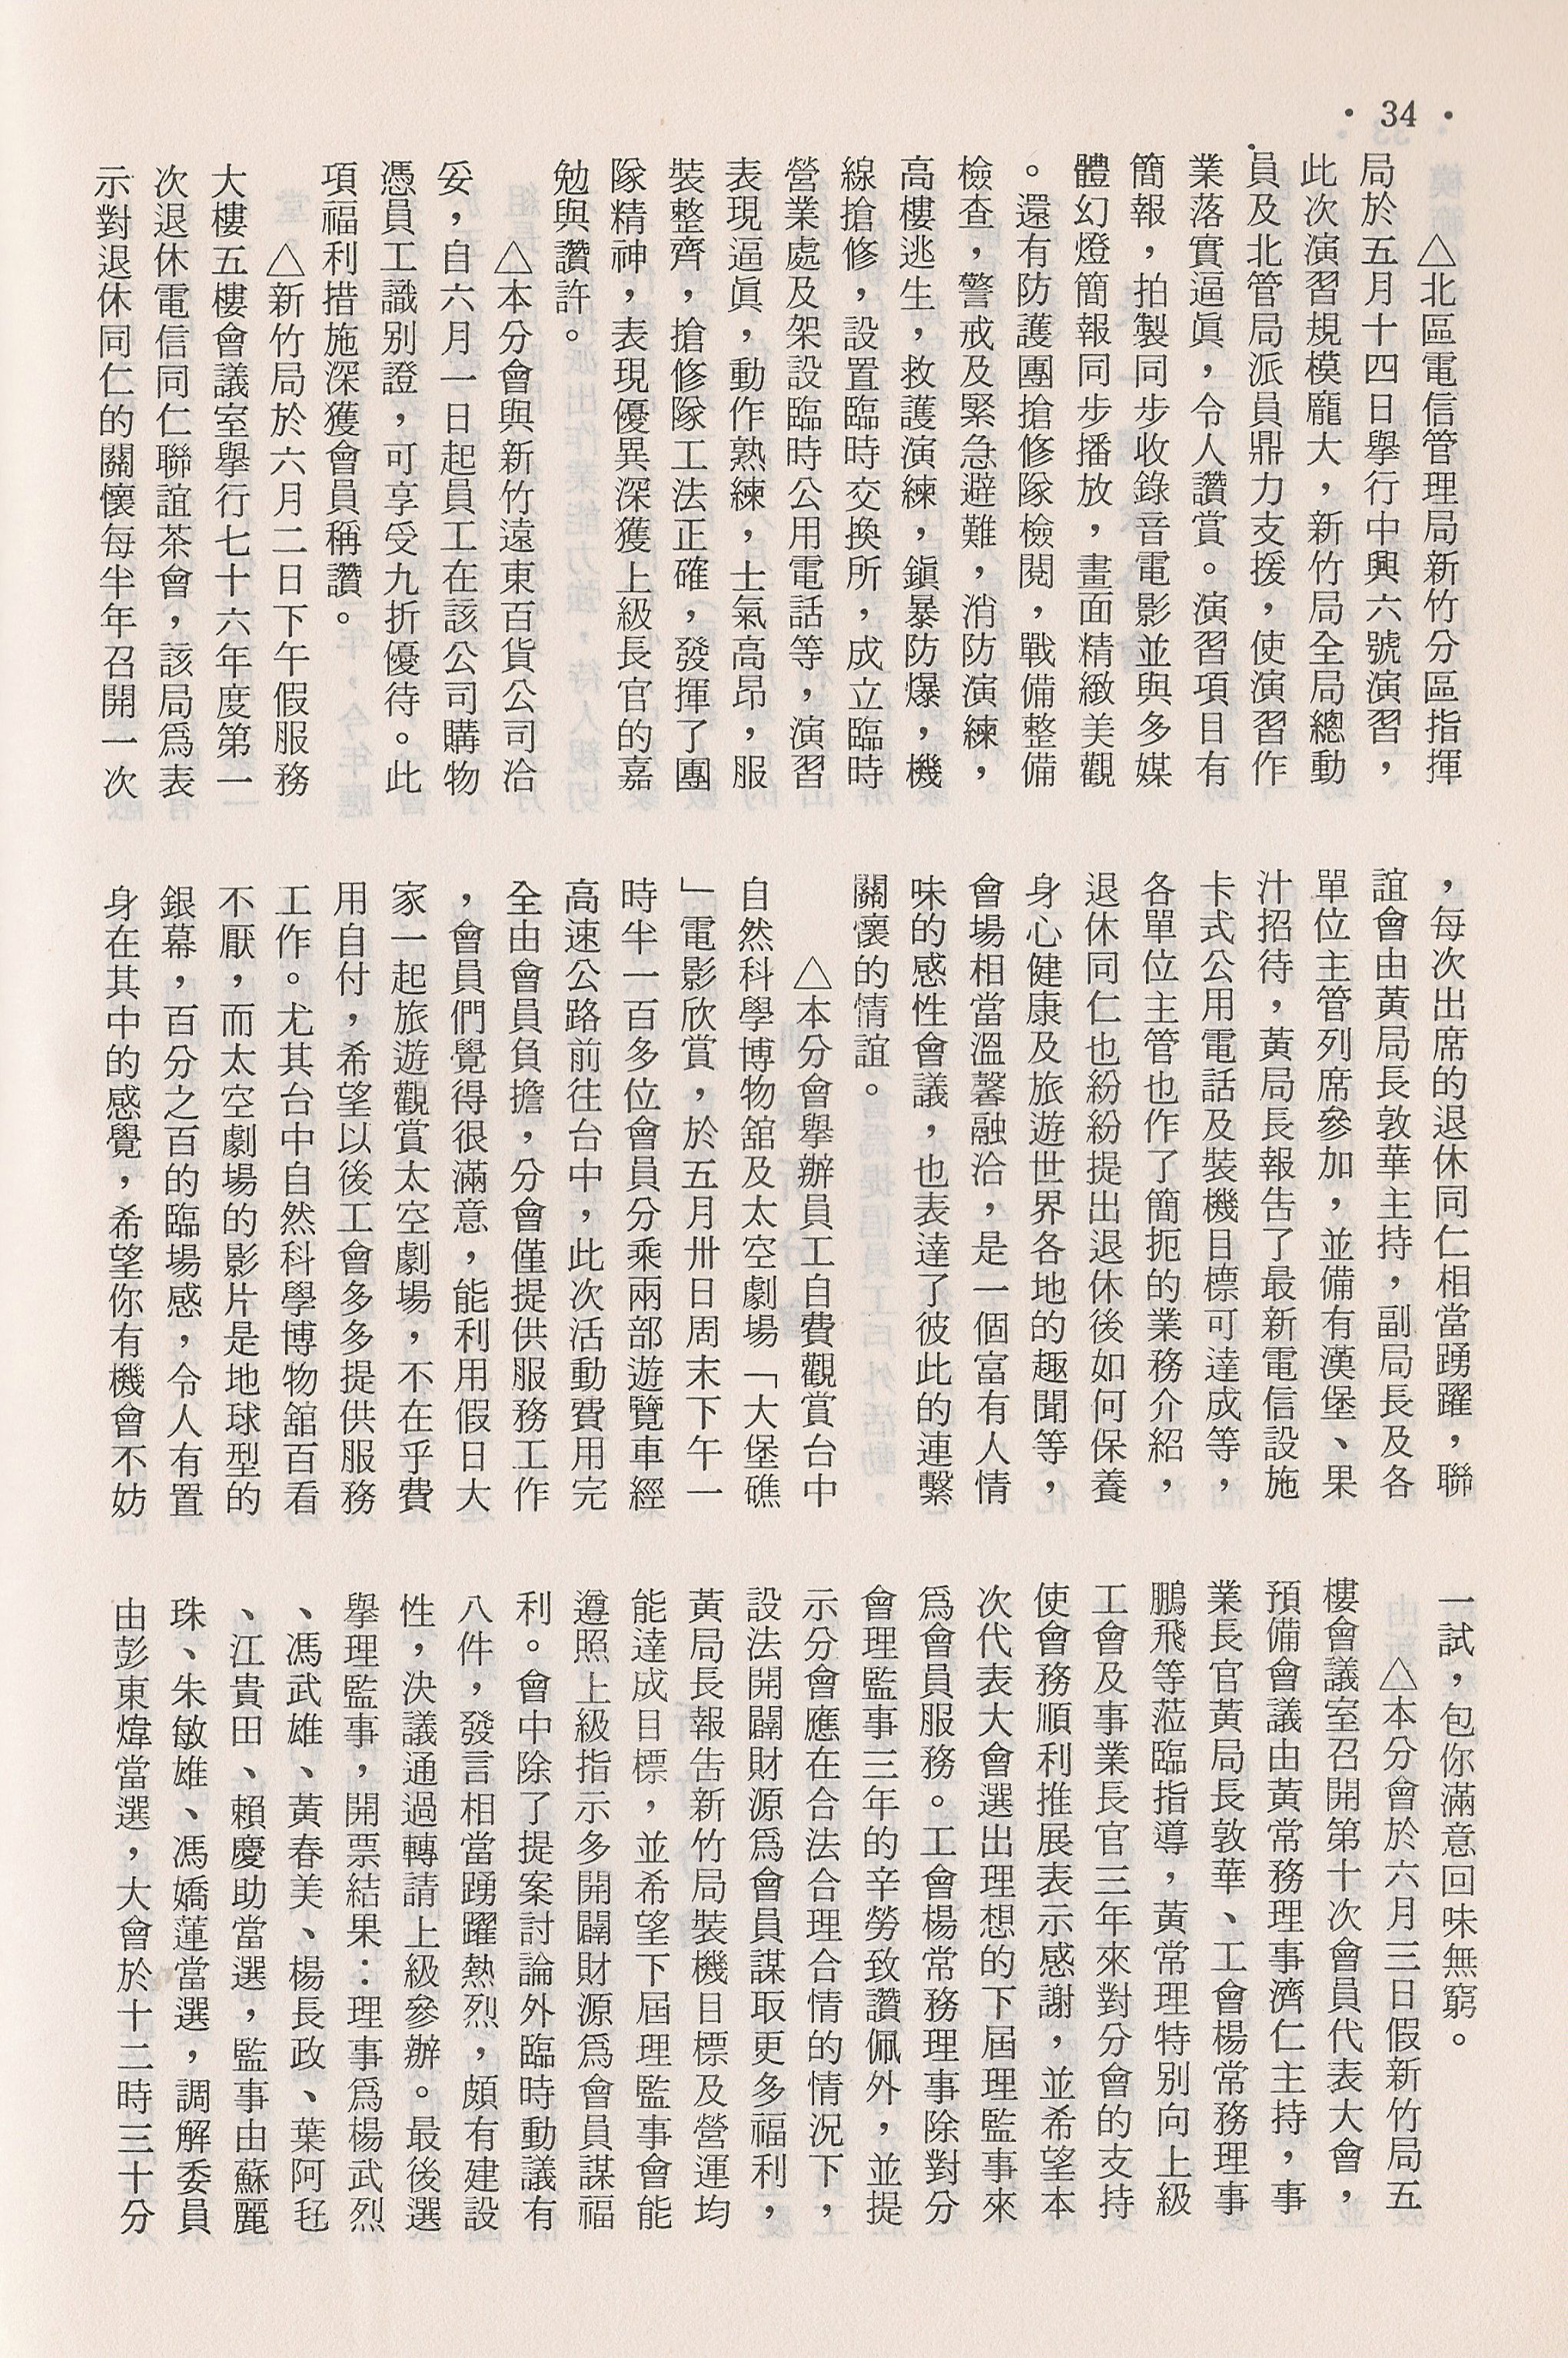 • 34 •
△北區電信管理局新竹分區指揮
局於五月十四日舉行中興六號演習，
此次演習規模龐大，新竹局全局總動
員及北管局派員鼎力支援，使演習作
業落實逼眞，令人讚賞。演習項目有
簡報，拍製同步收錄音電影並與多媒
體幻燈簡報同步播放，畫面精緻美觀
。還有防護團搶修隊檢閱，戰備整備
檢查，警戒及緊急避難，消防演練，
高樓逃生，救護演練，鎭暴防爆，機
線搶修，設置臨時交換所，成立臨時
營業處及架設臨時公用電話等，演習
表現逼眞，動作熟練，士氣高昂，服
裝整齊，搶修隊工法正確，發揮了團
隊精神，表現優異深獲上級長官的嘉
勉與讚許。
△本分會與新竹遠東百貨公司洽
妥，自六月一日起員工在該公司購物
憑員工識別證，可享受九折優待。此
項福利措施深獲會員稱讚。
△新竹局於六月二日下午假服務
大樓五樓會議室舉行七十六年度第一
次退休電信同仁聯誼茶會，該局爲表
示對退休同仁的關懷每半年召開一次
，每次出席的退休同仁相當踴躍，聯
誼會由黃局長敦華主持，副局長及各
單位主管列席參加，並備有漢堡、果
汁招待，黃局長報告了最新電信設施
卡式公用電話及裝機目標可達成等，
各單位主管也作了簡扼的業務介紹，
退休同仁也紛紛提出退休後如何保養
身心健康及旅遊世界各地的趣聞等，
會場相當溫馨融洽，是一個富有人情
味的感性會議，也表達了彼此的連繫
關懷的情誼。
△本分會舉辦員工自費觀賞台中
自然科學博物舘及太空劇場「大堡礁
」電影欣賞，於五月卅日周末下午一
時半一百多位會員分乘兩部遊覽車經
高速公路前往台中，此次活動費用完
全由會員負擔，分會僅提供服務工作
，會員們覺得很滿意，能利用假日大
家一起旅遊觀賞太空劇場，不在乎費
用自付，希望以後工會多多提供服務
工作。尤其台中自然科學博物舘百看
不厭，而太空劇場的影片是地球型的
銀幕，百分之百的臨場感，令人有置
身在其中的感覺，希望你有機會不妨
一試，包你滿意回味無窮。
△本分會於六月三日假新竹局五
樓會議室召開第十次會員代表大會，
預備會議由黃常務理事濟仁主持，事
業長官黃局長敦華、工會楊常務理事
鵬飛等蒞臨指導，黃常理特別向上級
工會及事業長官三年來對分會的支持
使會務順利推展表示感謝，並希望本
次代表大會選出理想的下屆理監事來
爲會員服務。工會楊常務理事除對分
會理監事三年的辛勞致讚佩外，並提
示分會應在合法合理合情的情況下，
設法開闢財源爲會員謀取更多福利，
黃局長報告新竹局裝機目標及營運均
能達成目標，並希望下屆理監事會能
遵照上級指示多開闢財源爲會員謀福
利。會中除了提案討論外臨時動議有
八件，發言相當踴躍熱烈，頗有建設
性，決議通過轉請上級參辦。最後選
舉理監事，開票結果：理事爲楊武烈
、馮武雄、黃春美、楊長政、葉阿毡
、江貴田、賴慶助當選，監事由蘇麗
珠、朱敏雄、馮嬌蓮當選，調解委員
由彭東煒當選，大會於十二時三十分